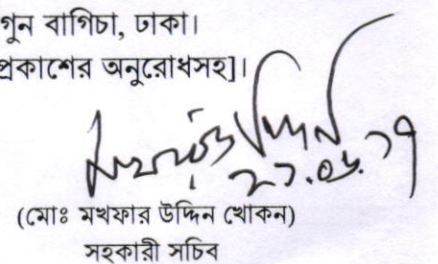 গুন বাগিচা, ঢাকা।
প্রকাশের অনুরোধসহ]।
(মোঃ মখফার উদ্দিন খোকন)
সহকারী সচিব